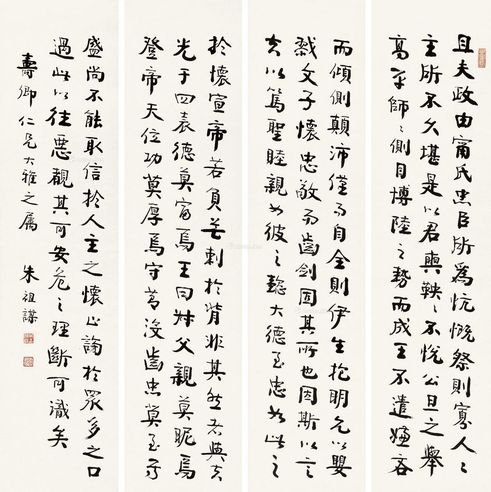 且夫政由甯氏忠臣所為忼慨祭則寡人〻
主所不久堪是以君奭鞅〻不悅公旦之舉
高平師〻側目博陸之勢而成王不遣嫌吝
而傾側顛沛僅而自全則伊生抱明允以嬰
戮文子懷忠敬而齒劍固其所也因斯以言
夫以篤聖睦親如彼之懿大德至忠如此之
於懷宣帝若負芒刺於背非其然者與夫
光于四表德莫富焉王曰叔父親莫昵焉
登帝天位功莫厚焉守節沒齒忠莫至焉
盛尚不能取信於人主之懷止謗於眾多之口
過此以往惡覩其可安危之理斷可識矣
壽卿仁兄大雅之屬
朱祖謀